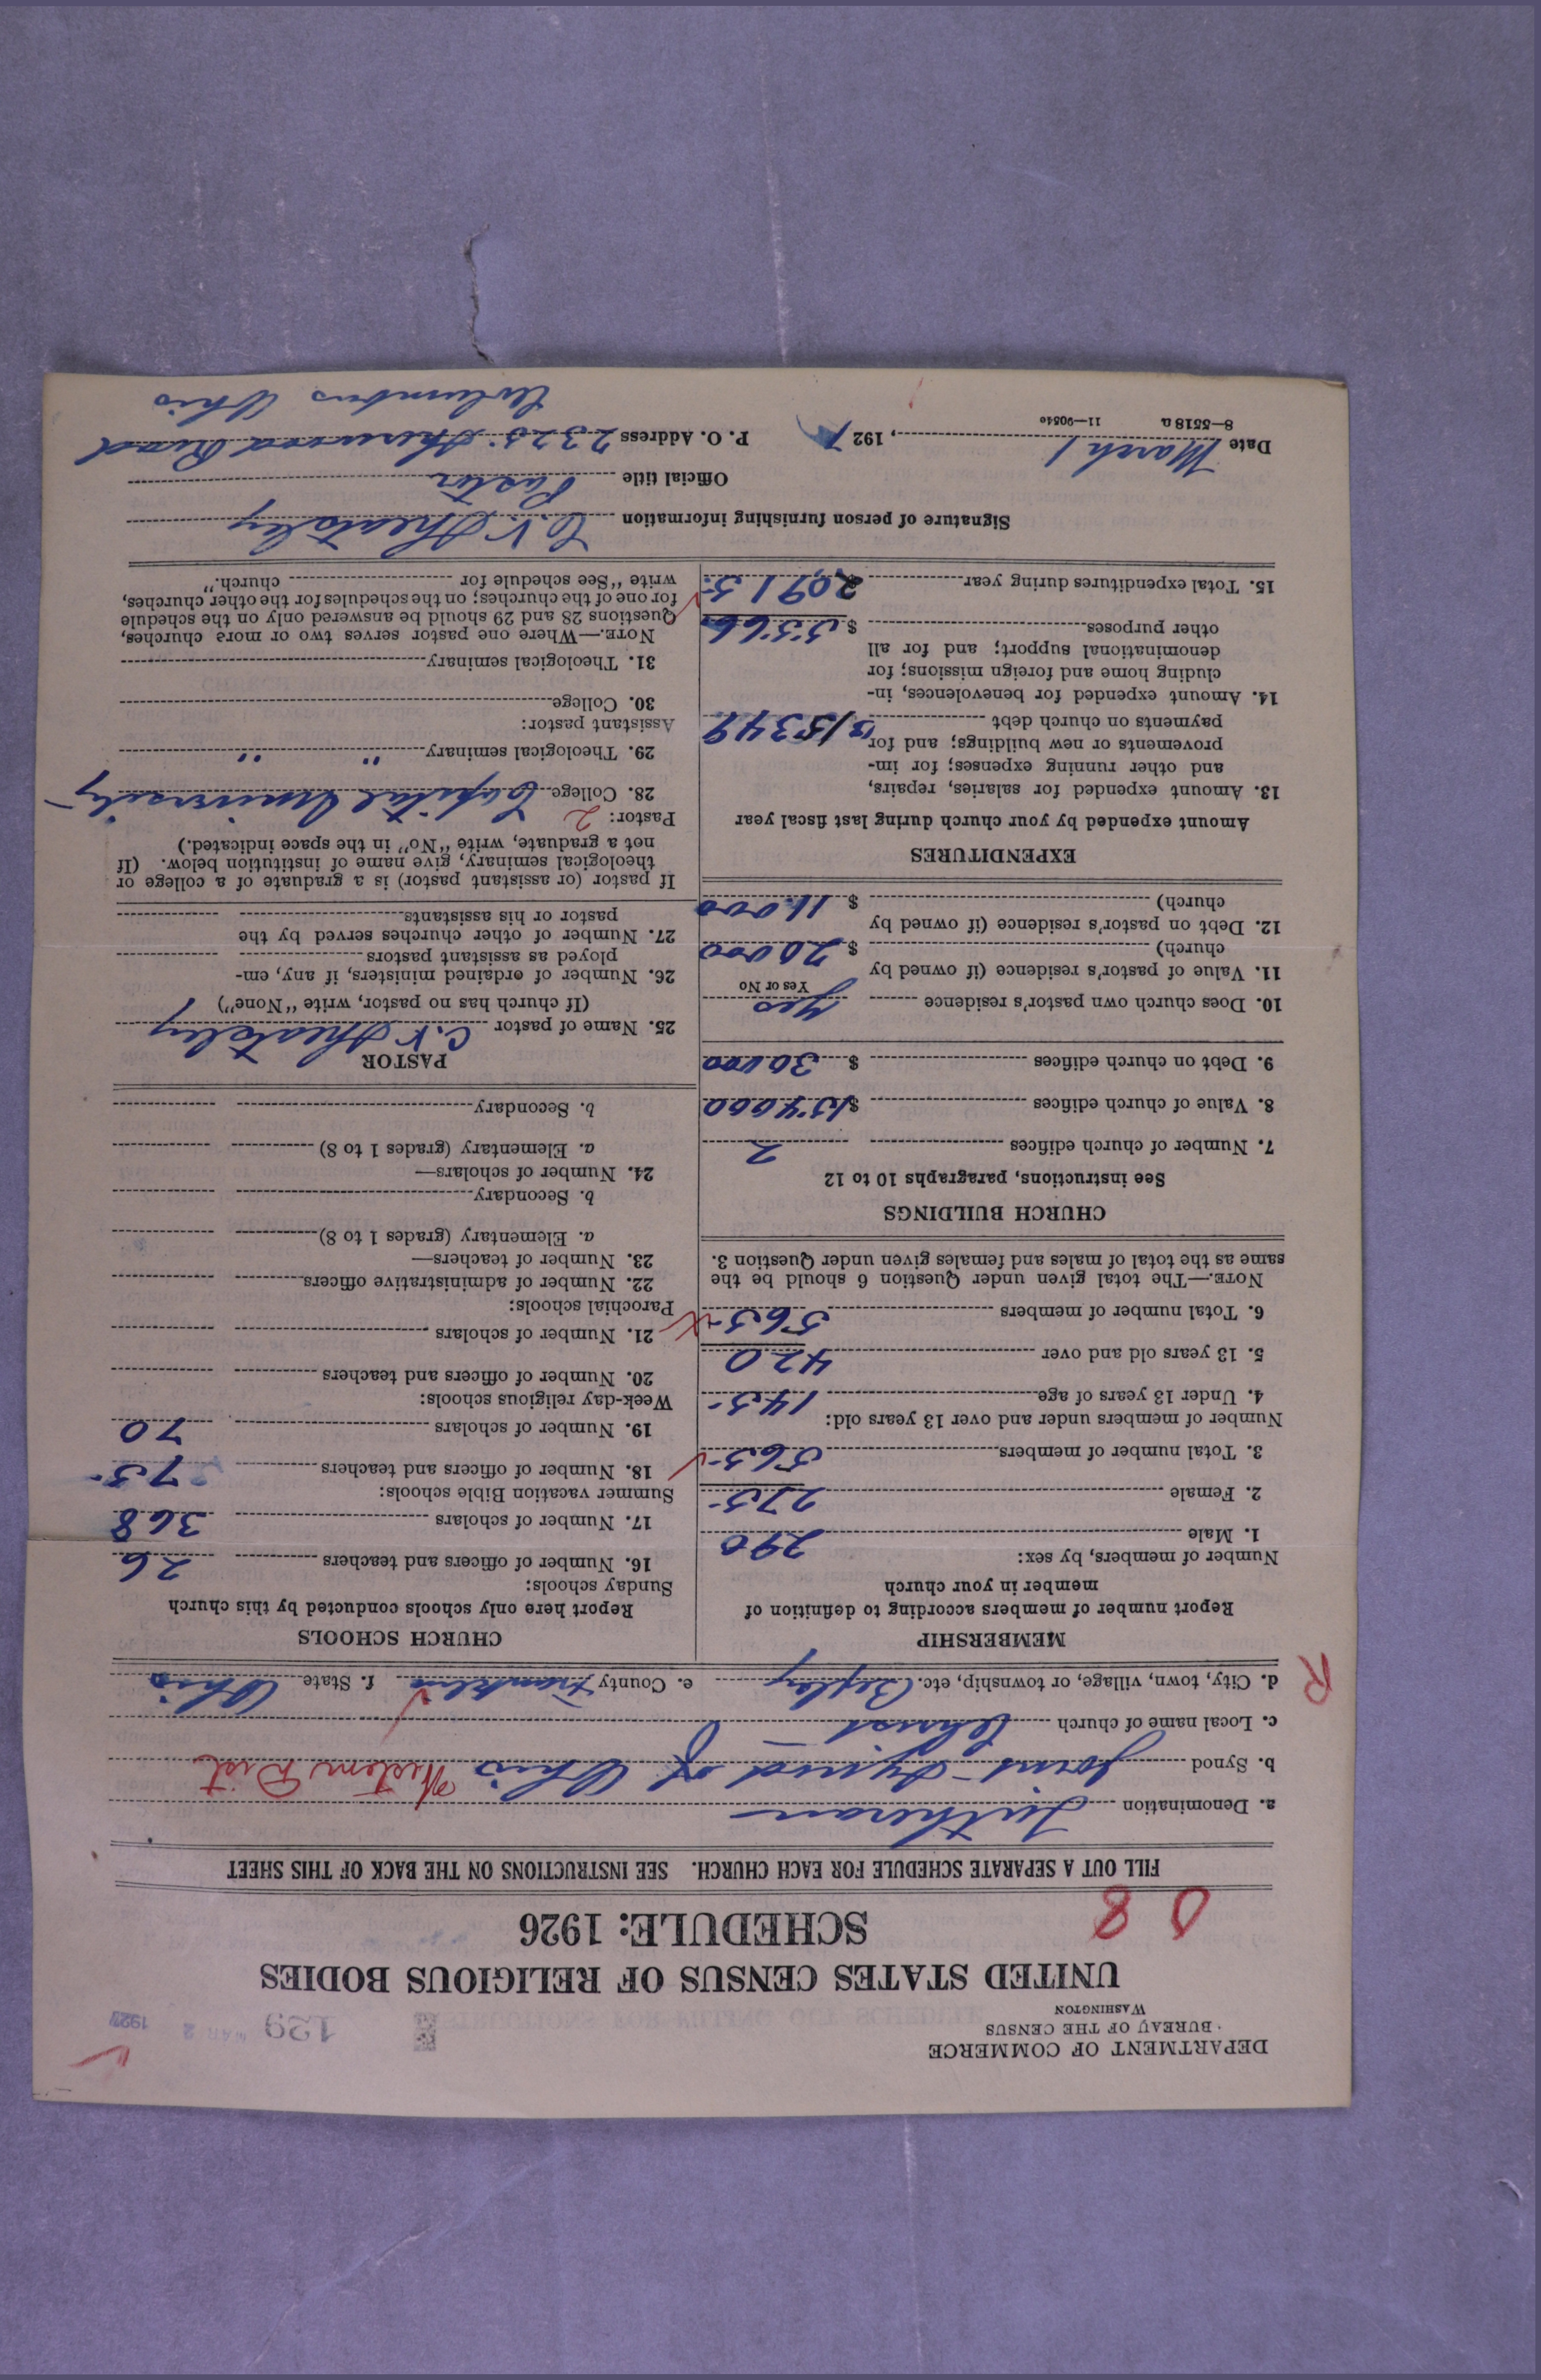 DEPARTMENT OF COMMERCE
BUREAU OF THE CENSUS
WASHINGTON
129 MAR 2 1927
UNITED STATES CENSUS OF RELIGIOUS BODIES
SCHEDULE: 1926
0 8
FILL OUT A SEPARATE SCHEDULE FOR EACH CHURCH. SEE INSTRUCTIONS ON THE BACK OF THIS SHEET
a. Denomination Lutheran
b. Synod Joint Synod of Ohio Western Dist
c. Local name of church Christ
R d. City, town, village, or township, etc. Bexley e. County Franklin f. State Ohio
MEMBERSHIP
Report number of members according to definition of
member in your church
Number of members, by sex:
1. Male 290
2. Female 275
3. Total number of members 565
Number of members under and over 13 years old:
4. Under 13 years of age 145
5. 13 years old and over 420
6. Total number of members 565
NOTE.—The total given under Question 6 should be the
same as the total of males and females given under Question 3.
CHURCH BUILDINGS
See instructions, paragraphs 10 to 12
7. Number of church edifices 2
8. Value of church edifices $154000
9. Debt on church edifices $ 30000
10. Does church own pastor's residence yes
Yes or No
11. Value of pastor's residence (if owned by
church) $ 20000
12. Debt on pastor's residence (if owned by
church) $ 11.000
EXPENDITURES
Amount expended by your church during last fiscal year
13. Amount expended for salaries, repairs,
and other running expenses; for im-
provements or new buildings; and for
payments on church debt $15349
14. Amount expended for benevolences, in-
cluding home and foreign missions; for
denominational support; and for all
other purposes $ 5566
15. Total expenditures during year 20,915
CHURCH SCHOOLS
Report here only schools conducted by this church
Sunday schools:
16. Number of officers and teachers 26
17. Number of scholars 368
Summer vacation Bible schools:
18. Number of officers and teachers 75
19. Number of scholars 70
Week-day religious schools:
20. Number of officers and teachers
21. Number of scholars
Parochial schools:
22. Number of administrative officers
23. Number of teachers—
a. Elementary (grades 1 to 8)
b. Secondary
24. Number of scholars—
a. Elementary (grades 1 to 8)
b. Secondary
PASTOR
25. Name of pastor C. V. Sheatsley
(If church has no pastor, write "None")
26. Number of ordained ministers, if any, em-
ployed as assistant pastors
27. Number of other churches served by the
pastor or his assistants
If pastor (or assistant pastor) is a graduate of a college or
theological seminary, give name of institution below. (If
not a graduate, write "No" in the space indicated.)
Pastor: 2
28. College Capital University
29. Theological seminary " "
Assistant pastor:
30. College
31. Theological seminary
NOTE.—Where one pastor serves two or more churches,
Questions 28 and 29 should be answered only on the schedule
for one of the churches; on the schedules for the other churches,
write "See schedule for church."
Signature of person furnishing information C. V. Sheatsley
Official title Pastor
Date March 1, 1927 P. O. Address 2325 Sherwood Road
8—5518 a 11—9054c Columbus Ohio